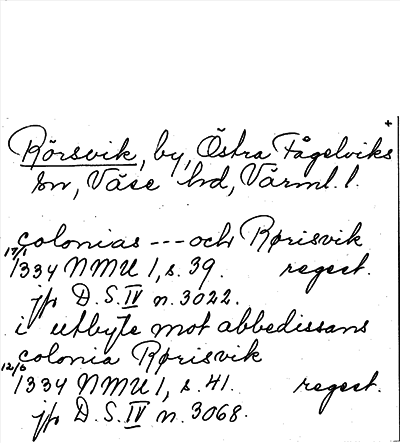 +
Rörsvik, by, Östra Fågelviks
sn, Väse hd, Värml. l.
colonias --- och Rørisvik
17/1 1334 NMU 1, s. 39. regest.
jfr D.S. IV n. 3022.
i utbyte mot abbedissans
colonia Rørisvik
12/6 1334 NMU 1, s. 41. regest.
jfr D.S. IV n. 3068.